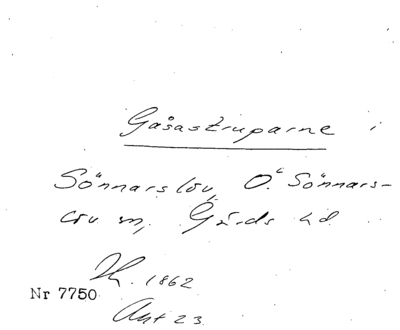 Gåsastruparne i
Sönnarslöv, Ö. Sönnars-
löv sn, Gärds hd.
1862
Nr 7750
Akt 23